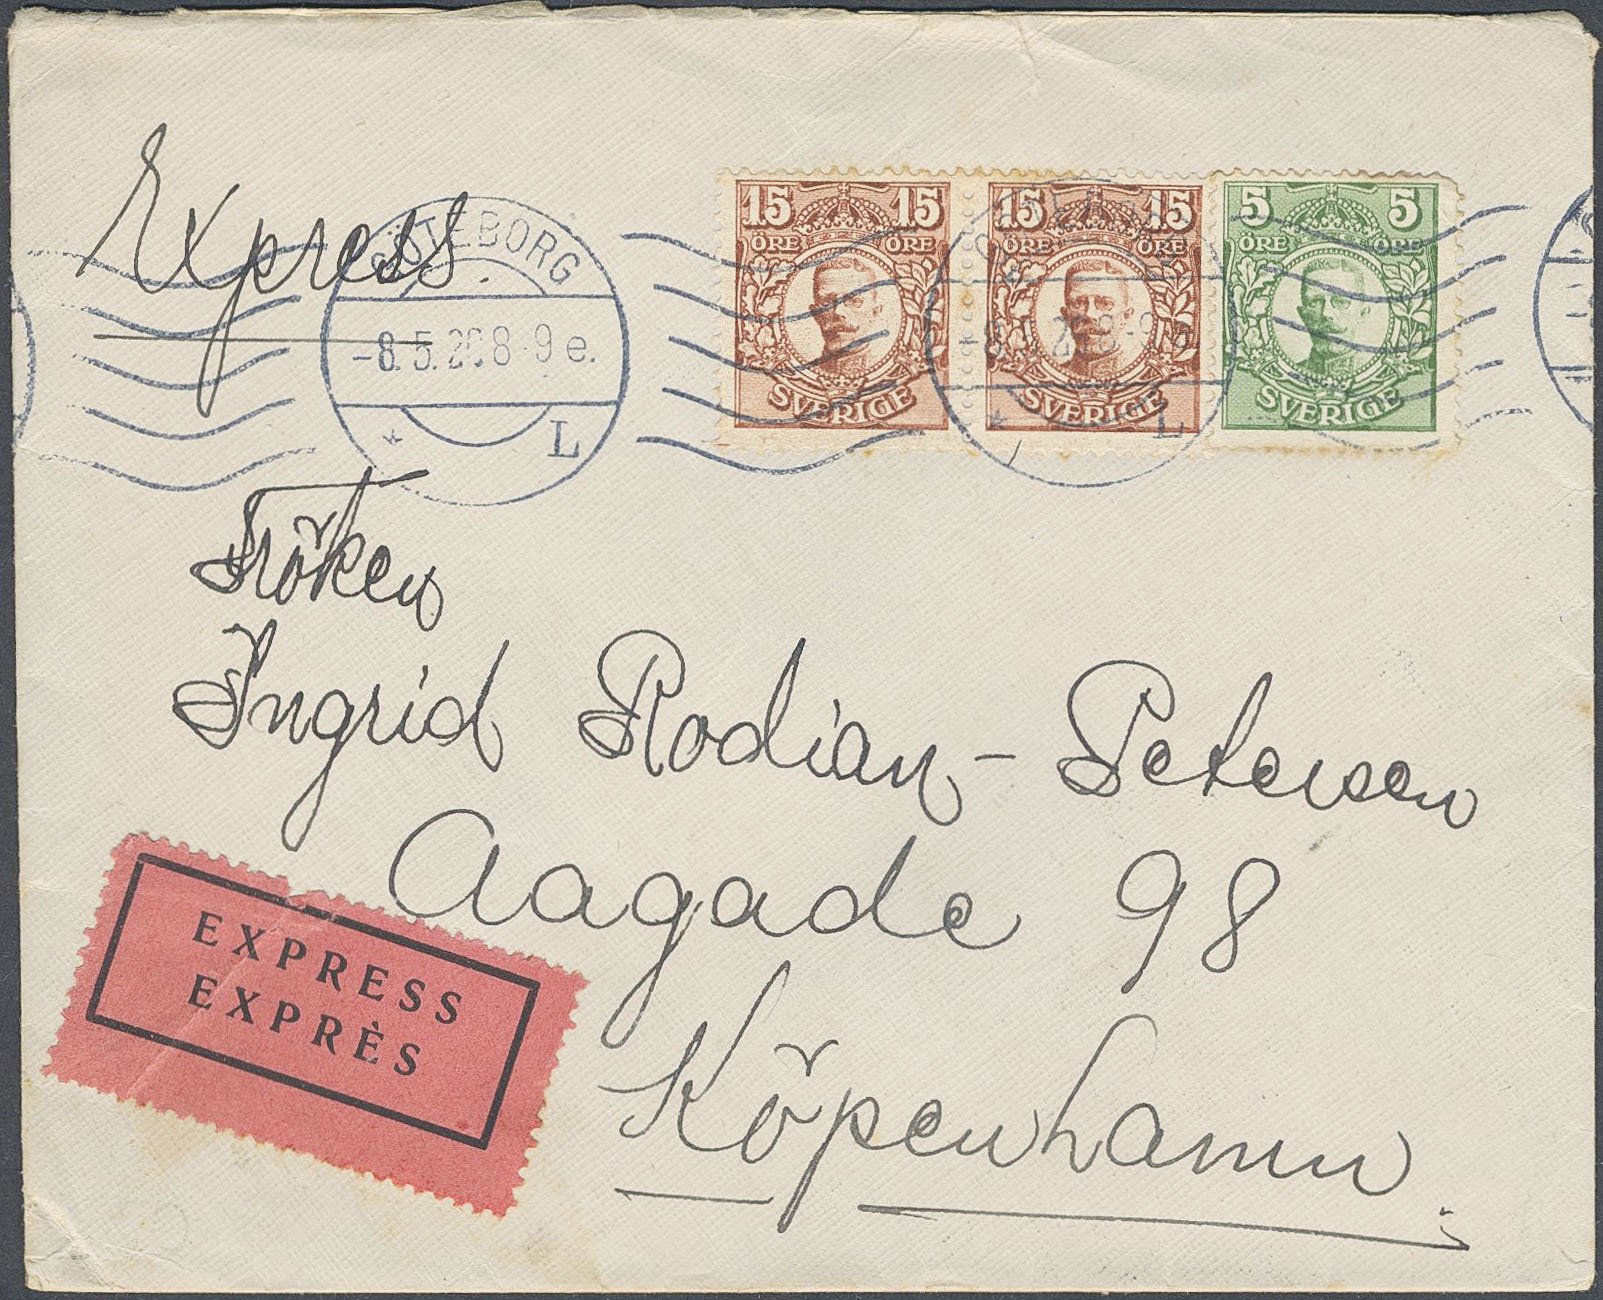 Express
GÖTEBORG
-8.5.20.8-9 e.
L
15 15
ÖRE ÖRE
SVERIGE
15 15
ÖRE ÖRE
SVERIGE
L
5 5
ÖRE ÖRE
SVERIGE
Fröken
Ingrid Rodian-Petersen
Aagade 98
Köpenhamn
EXPRESS
EXPRÈS